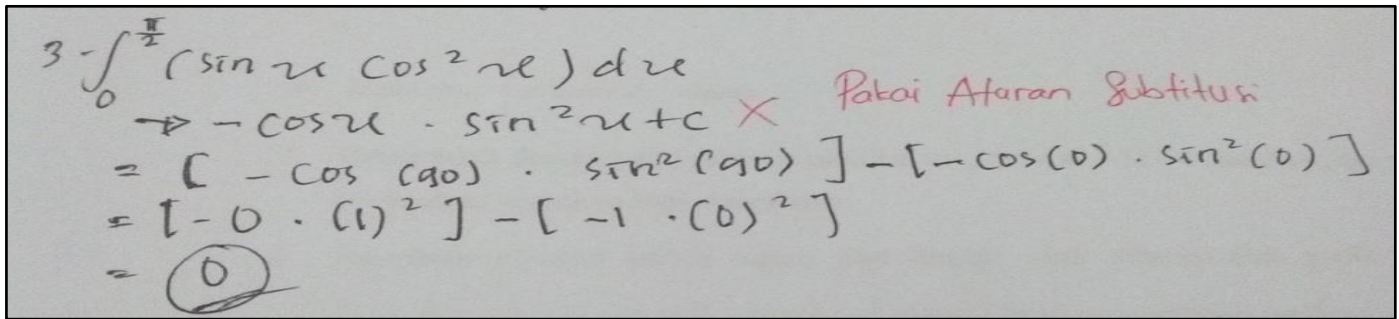 3. ∫₀^(π/2) (sin x cos² x) dx
→ - cos x · sin² x + c × Pakai Aturan Subtitusi
= [ - cos (90) · sin² (90) ] - [ - cos (0) · sin² (0) ]
= [ - 0 · (1)² ] - [ -1 · (0)² ]
= 0